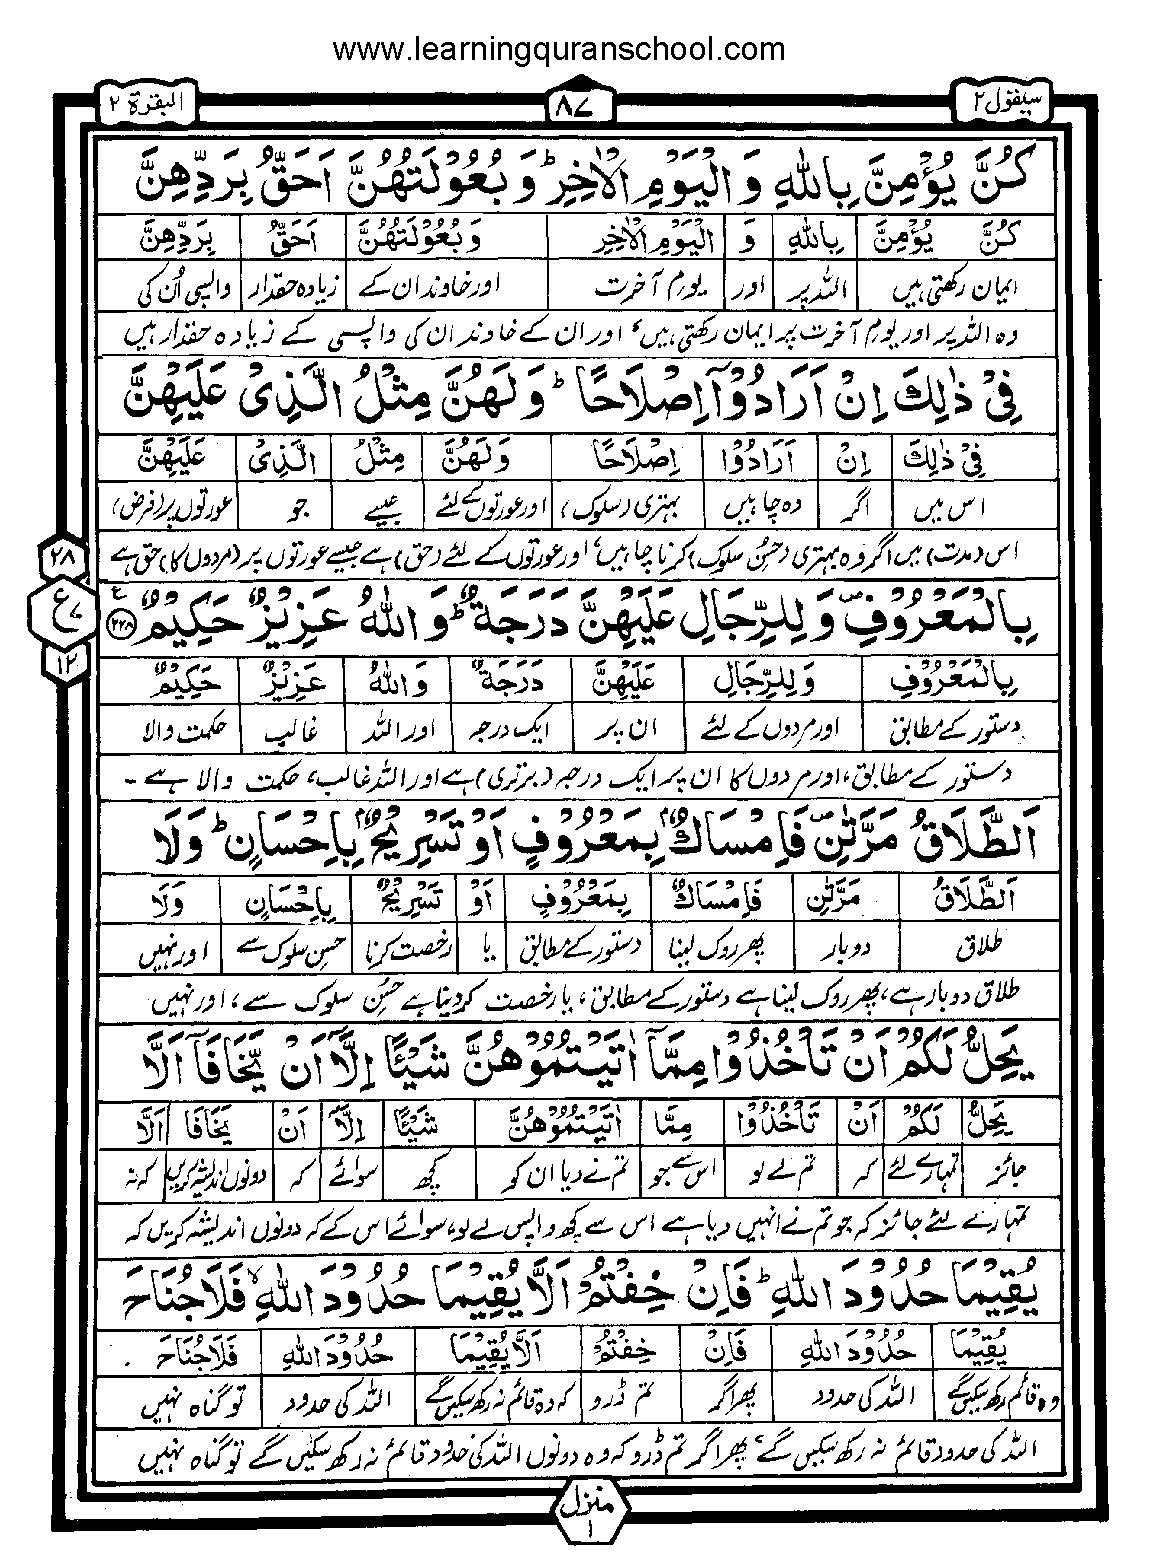 www.learningquranschool.com
سیقول ۲ ۸۷ البقرة ۲
كُنَّ يُؤْمِنَّ بِاللّٰهِ وَ الْيَوْمِ الْاٰخِرِ ؕ وَ بُعُوْلَتُهُنَّ اَحَقُّ بِرَدِّهِنَّ
كُنَّ يُؤْمِنَّ بِاللّٰهِ وَ الْيَوْمِ الْاٰخِرِ وَ بُعُوْلَتُهُنَّ اَحَقُّ بِرَدِّهِنَّ
ایمان رکھتی ہیں اللہ پر اور یوم آخرت اور خاوند ان کے زیادہ حقدار واپسی اُن کی
وہ اللہ پر اور یوم آخرت پر ایمان رکھتی ہیں، اور ان کے خاوند ان کی واپسی کے زیادہ حقدار ہیں
فِیْ ذٰلِكَ اِنْ اَرَادُوْۤا اِصْلَاحًا ؕ وَ لَهُنَّ مِثْلُ الَّذِیْ عَلَيْهِنَّ
فِیْ ذٰلِكَ اِنْ اَرَادُوْا اِصْلَاحًا وَ لَهُنَّ مِثْلُ الَّذِیْ عَلَيْهِنَّ
اس میں اگر وہ چاہیں بہتری (سلوک) اور عورتوں کے لئے جیسے جو عورتوں پر (فرض)
اس (مدت) میں اگر وہ بہتری (حسن سلوک) کرنا چاہیں، اور عورتوں کے لئے (حق) ہے جیسے عورتوں پر (مردوں کا) حق ہے
۲۸
ع ۷
۱۲
بِالْمَعْرُوْفِ ۪ وَ لِلرِّجَالِ عَلَيْهِنَّ دَرَجَةٌ ؕ وَ اللّٰهُ عَزِيْزٌ حَكِيْمٌ ۲۲۸ ع
بِالْمَعْرُوْفِ وَ لِلرِّجَالِ عَلَيْهِنَّ دَرَجَةٌ وَ اللّٰهُ عَزِيْزٌ حَكِيْمٌ
دستور کے مطابق اور مردوں کے لئے ان پر ایک درجہ اور اللہ غالب حکمت والا
دستور کے مطابق، اور مردوں کا ان پر ایک درجہ (برتری) ہے اور اللہ غالب، حکمت والا ہے -
اَلطَّلَاقُ مَرَّتٰنِ ۪ فَاِمْسَاكٌۢ بِمَعْرُوْفٍ اَوْ تَسْرِيْحٌۢ بِاِحْسَانٍ ؕ وَ لَا
اَلطَّلَاقُ مَرَّتٰنِ فَاِمْسَاكٌ بِمَعْرُوْفٍ اَوْ تَسْرِيْحٌ بِاِحْسَانٍ وَ لَا
طلاق دو بار پھر روک لینا دستور کے مطابق یا رخصت کرنا حسن سلوک سے اور نہیں
طلاق دو بار ہے، پھر روک لینا ہے دستور کے مطابق، یا رخصت کر دینا ہے حسن سلوک سے، اور نہیں
يَحِلُّ لَكُمْ اَنْ تَاْخُذُوْا مِمَّاۤ اٰتَيْتُمُوْهُنَّ شَيْئًا اِلَّاۤ اَنْ يَّخَافَاۤ اَلَّا
يَحِلُّ لَكُمْ اَنْ تَاْخُذُوْا مِمَّا اٰتَيْتُمُوْهُنَّ شَيْئًا اِلَّا اَنْ يَخَافَا اَلَّا
جائز تمہارے لئے کہ تم لے لو اس سے جو تم نے دیا ان کو کچھ سوائے کہ دونوں اندیشہ کریں کہ نہ
تمہارے لئے جائز کہ جو تم نے انہیں دیا ہے اس سے کچھ واپس لے لو، سوائے اس کے کہ دونوں اندیشہ کریں کہ
يُقِيْمَا حُدُوْدَ اللّٰهِ ؕ فَاِنْ خِفْتُمْ اَلَّا يُقِيْمَا حُدُوْدَ اللّٰهِ ۙ فَلَا جُنَاحَ
يُقِيْمَا حُدُوْدَ اللّٰهِ فَاِنْ خِفْتُمْ اَلَّا يُقِيْمَا حُدُوْدَ اللّٰهِ فَلَا جُنَاحَ
وہ قائم رکھ سکیں گے اللہ کی حدود پھر اگر تم ڈرو کہ وہ قائم نہ رکھ سکیں گے اللہ کی حدود تو گناہ نہیں
اللہ کی حدود قائم نہ رکھ سکیں گے، پھر اگر تم ڈرو کہ وہ دونوں اللہ کی حدود قائم نہ رکھ سکیں گے تو گناہ نہیں
منزل ۱